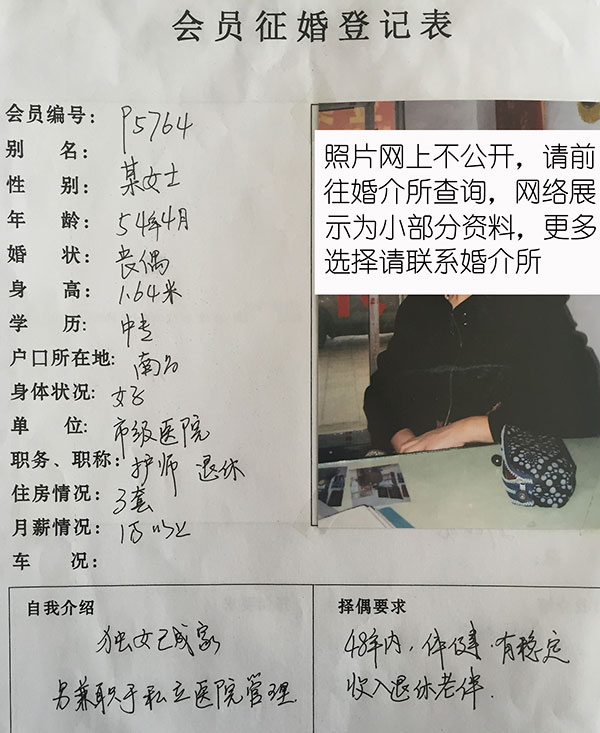 会员征婚登记表
会员编号: P5764
别 名: 某女士
性 别:
年 龄: 54年4月
婚 状: 丧偶
身 高: 1.64米
学 历: 中专
户口所在地: 南昌
身体状况: 好
单 位: 市级医院
职务、职称: 护师 退休
住房情况: 3套
月薪情况: 1万以上
车 况:
照片网上不公开，请前
往婚介所查询，网络展
示为小部分资料，更多
选择请联系婚介所
自我介绍
独女已成家
另兼职于私立医院管理.
择偶要求
48年内，体健.有稳定
收入退休老伴.